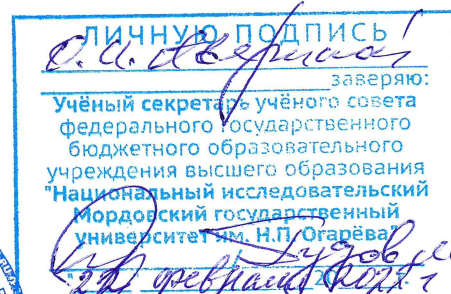 ЛИЧНУЮ ПОДПИСЬ
О.И. Аверкиной
заверяю:
Учёный секретарь учёного совета
федерального государственного
бюджетного образовательного
учреждения высшего образования
"Национальный исследовательский
Мордовский государственный
университет им. Н.П. Огарёва"
"22" февраля